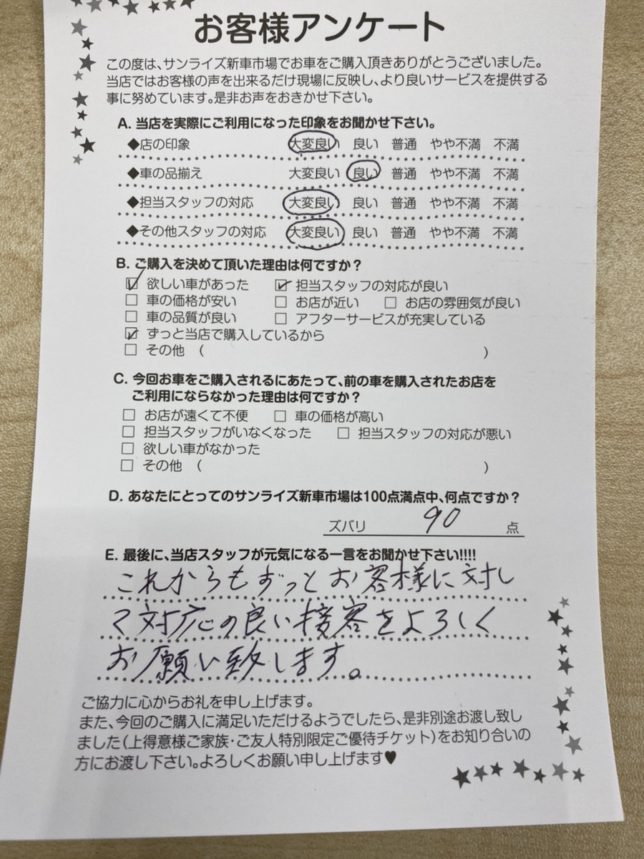 お客様アンケート
この度は、サンライズ新車市場でお車をご購入頂きありがとうございました。
当店ではお客様の声を出来るだけ現場に反映し、より良いサービスを提供する
事に努めています。是非お声をおきかせ下さい。
A. 当店を実際にご利用になった印象をお聞かせ下さい。
◆店の印象 大変良い 良い 普通 やや不満 不満
◆車の品揃え 大変良い 良い 普通 やや不満 不満
◆担当スタッフの対応 大変良い 良い 普通 やや不満 不満
◆その他スタッフの対応 大変良い 良い 普通 やや不満 不満
B. ご購入を決めて頂いた理由は何ですか?
☑ 欲しい車があった ☑ 担当スタッフの対応が良い
□ 車の価格が安い □ お店が近い □ お店の雰囲気が良い
□ 車の品質が良い □ アフターサービスが充実している
☑ ずっと当店で購入しているから
□ その他 ( )
C. 今回お車をご購入されるにあたって、前の車を購入されたお店を
ご利用にならなかった理由は何ですか?
□ お店が遠くて不便 □ 車の価格が高い
□ 担当スタッフがいなくなった □ 担当スタッフの対応が悪い
□ 欲しい車がなかった
□ その他 ( )
D. あなたにとってのサンライズ新車市場は100点満点中、何点ですか?
ズバリ 90 点
E. 最後に、当店スタッフが元気になる一言をお聞かせ下さい!!!!
これからもずっとお客様に対し
て対応の良い接客をよろしく
お願い致します。
ご協力に心からお礼を申し上げます。
また、今回のご購入に満足いただけるようでしたら、是非別途お渡し致し
ました(上得意様ご家族・ご友人特別限定ご優待チケット)をお知り合いの
方にお渡し下さい。よろしくお願い申し上げます♥